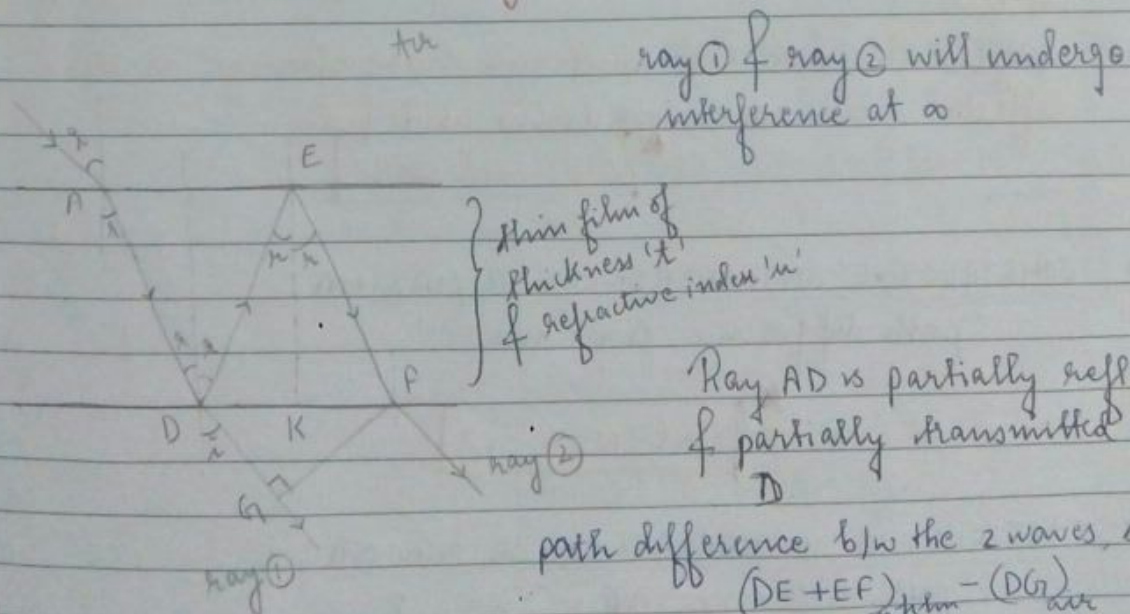 Air
ray ① & ray ② will undergo
interference at ∞
i
A
r
E
r r
thin film of
thickness 't'
& refractive index 'u'
r r
F
D K
i
Ray AD is partially refl
& partially transmitted
D
ray ②
G
path difference b/w the 2 waves,
ray ①
(DE + EF)film - (DG)air